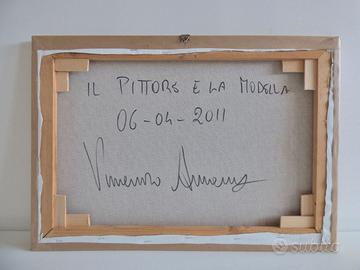 IL PITTORE E LA MODELLA
06-04-2011
Vincenzo
subito